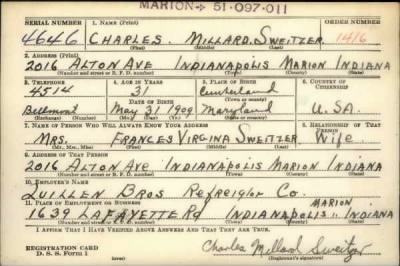 MARION - 51-097-011
SERIAL NUMBER 1. NAME (Print) ORDER NUMBER
4646 CHARLES. MILLARD. SWEITZER. 1416
(First) (Middle) (Last)
2. ADDRESS (Print)
2016 ALTON AVE INDIANAPOLIS MARION INDIANA
(Number and street or R. F. D. number) (Town) (County) (State)
3. TELEPHONE 4. AGE IN YEARS 5. PLACE OF BIRTH 6. COUNTRY OF CITIZENSHIP
4514 31 Cumberland
DATE OF BIRTH (Town or county)
Bellmont May 31 1909 Maryland U.S.A.
(Exchange) (Number) (Mo.) (Day) (Yr.) (State or country)
7. NAME OF PERSON WHO WILL ALWAYS KNOW YOUR ADDRESS 8. RELATIONSHIP OF THAT PERSON
MRS. FRANCES VIRGINA SWEITZER Wife
(Mr., Mrs., Miss) (First) (Middle) (Last)
9. ADDRESS OF THAT PERSON
2016 ALTON AVE INDIANAPOLIS MARION INDIANA
(Number and street or R. F. D. number) (Town) (County) (State)
10. EMPLOYER'S NAME
QUILLEN BROS REFREIGTOR CO.
11. PLACE OF EMPLOYMENT OR BUSINESS MARION
1639 LAFAYETTE RD INDIANAPOLIS INDIANA
(Number and street or R. F. D. number) (Town) (County) (State)
I AFFIRM THAT I HAVE VERIFIED ABOVE ANSWERS AND THAT THEY ARE TRUE.
REGISTRATION CARD
D. S. S. Form 1 Charles Millard Sweitzer
(Registrant's signature)